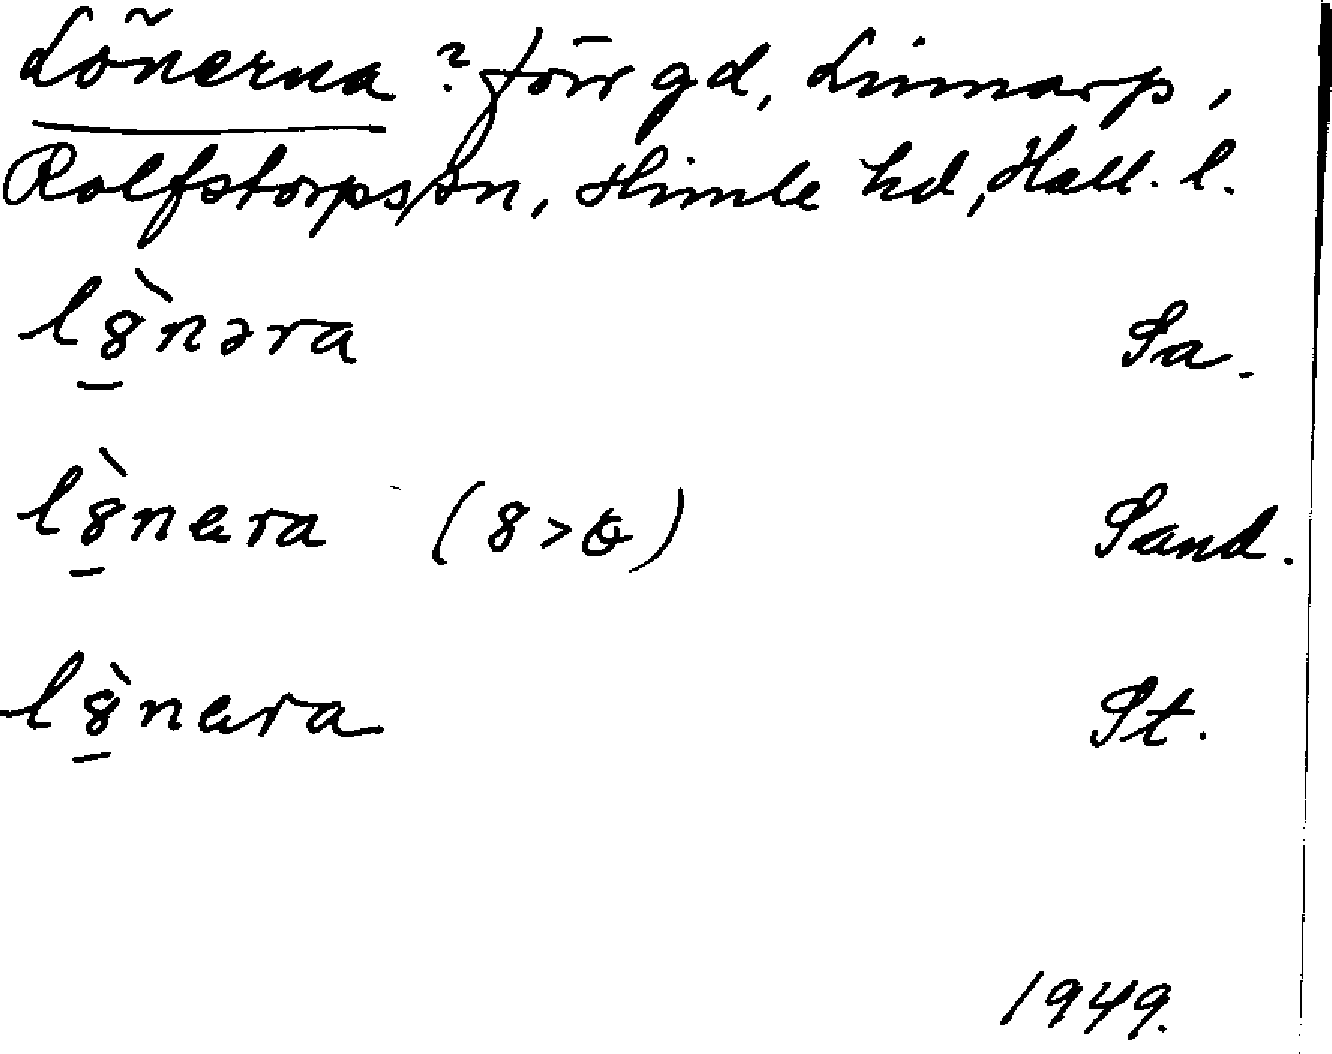 Lönerna? förr gd, Linnarp,
Rolfstorps sn, Himle hd, Hall. l.
l8̠̀nəra Sa.
l8̠̀nera (8>ɵ) Sand.
l8̠̀nera St.
1949.